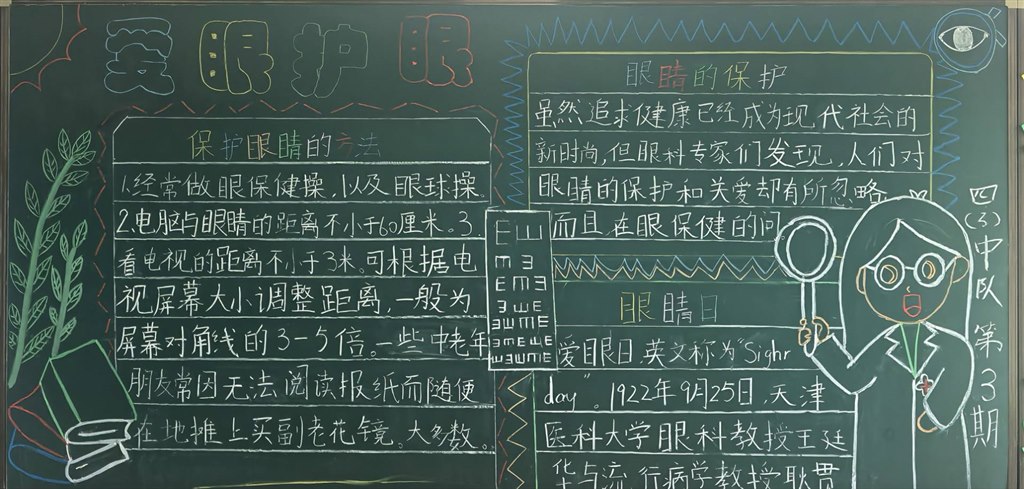 爱眼护眼
保护眼睛的方法
1.经常做眼保健操,以及眼球操.
2.电脑与眼睛的距离不小于60厘米。3.
看电视的距离不小于3米。可根据电
视屏幕大小调整距离,一般为
屏幕对角线的3-5倍。一些中老年
朋友常因无法阅读报纸而随便
在地摊上买副老花镜。大多数。
眼睛的保护
虽然追求健康已经成为现代社会的
新时尚,但眼科专家们发现,人们对
眼睛的保护和关爱却有所忽略,
而且在眼保健的问
眼睛日
爱眼日,英文称为"Sighr
day"。1922年9月25日,天津
医科大学眼科教授王延
华与流行病学教授耿贯
E Ш
m 3
E m 3
3 Ш E
3 Ш m E
四(3)中队第3期